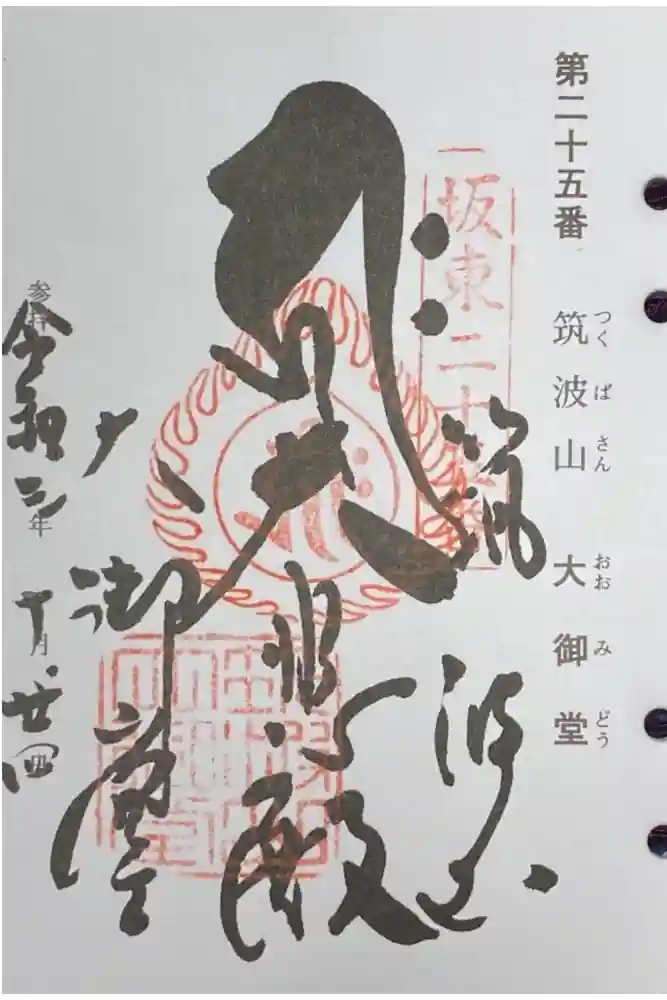 第二十五番 筑波山 大御堂
つくば さん おお み どう
坂東二十五番
筑波山
大悲殿
大御堂
参拝
令和三年十月廿四